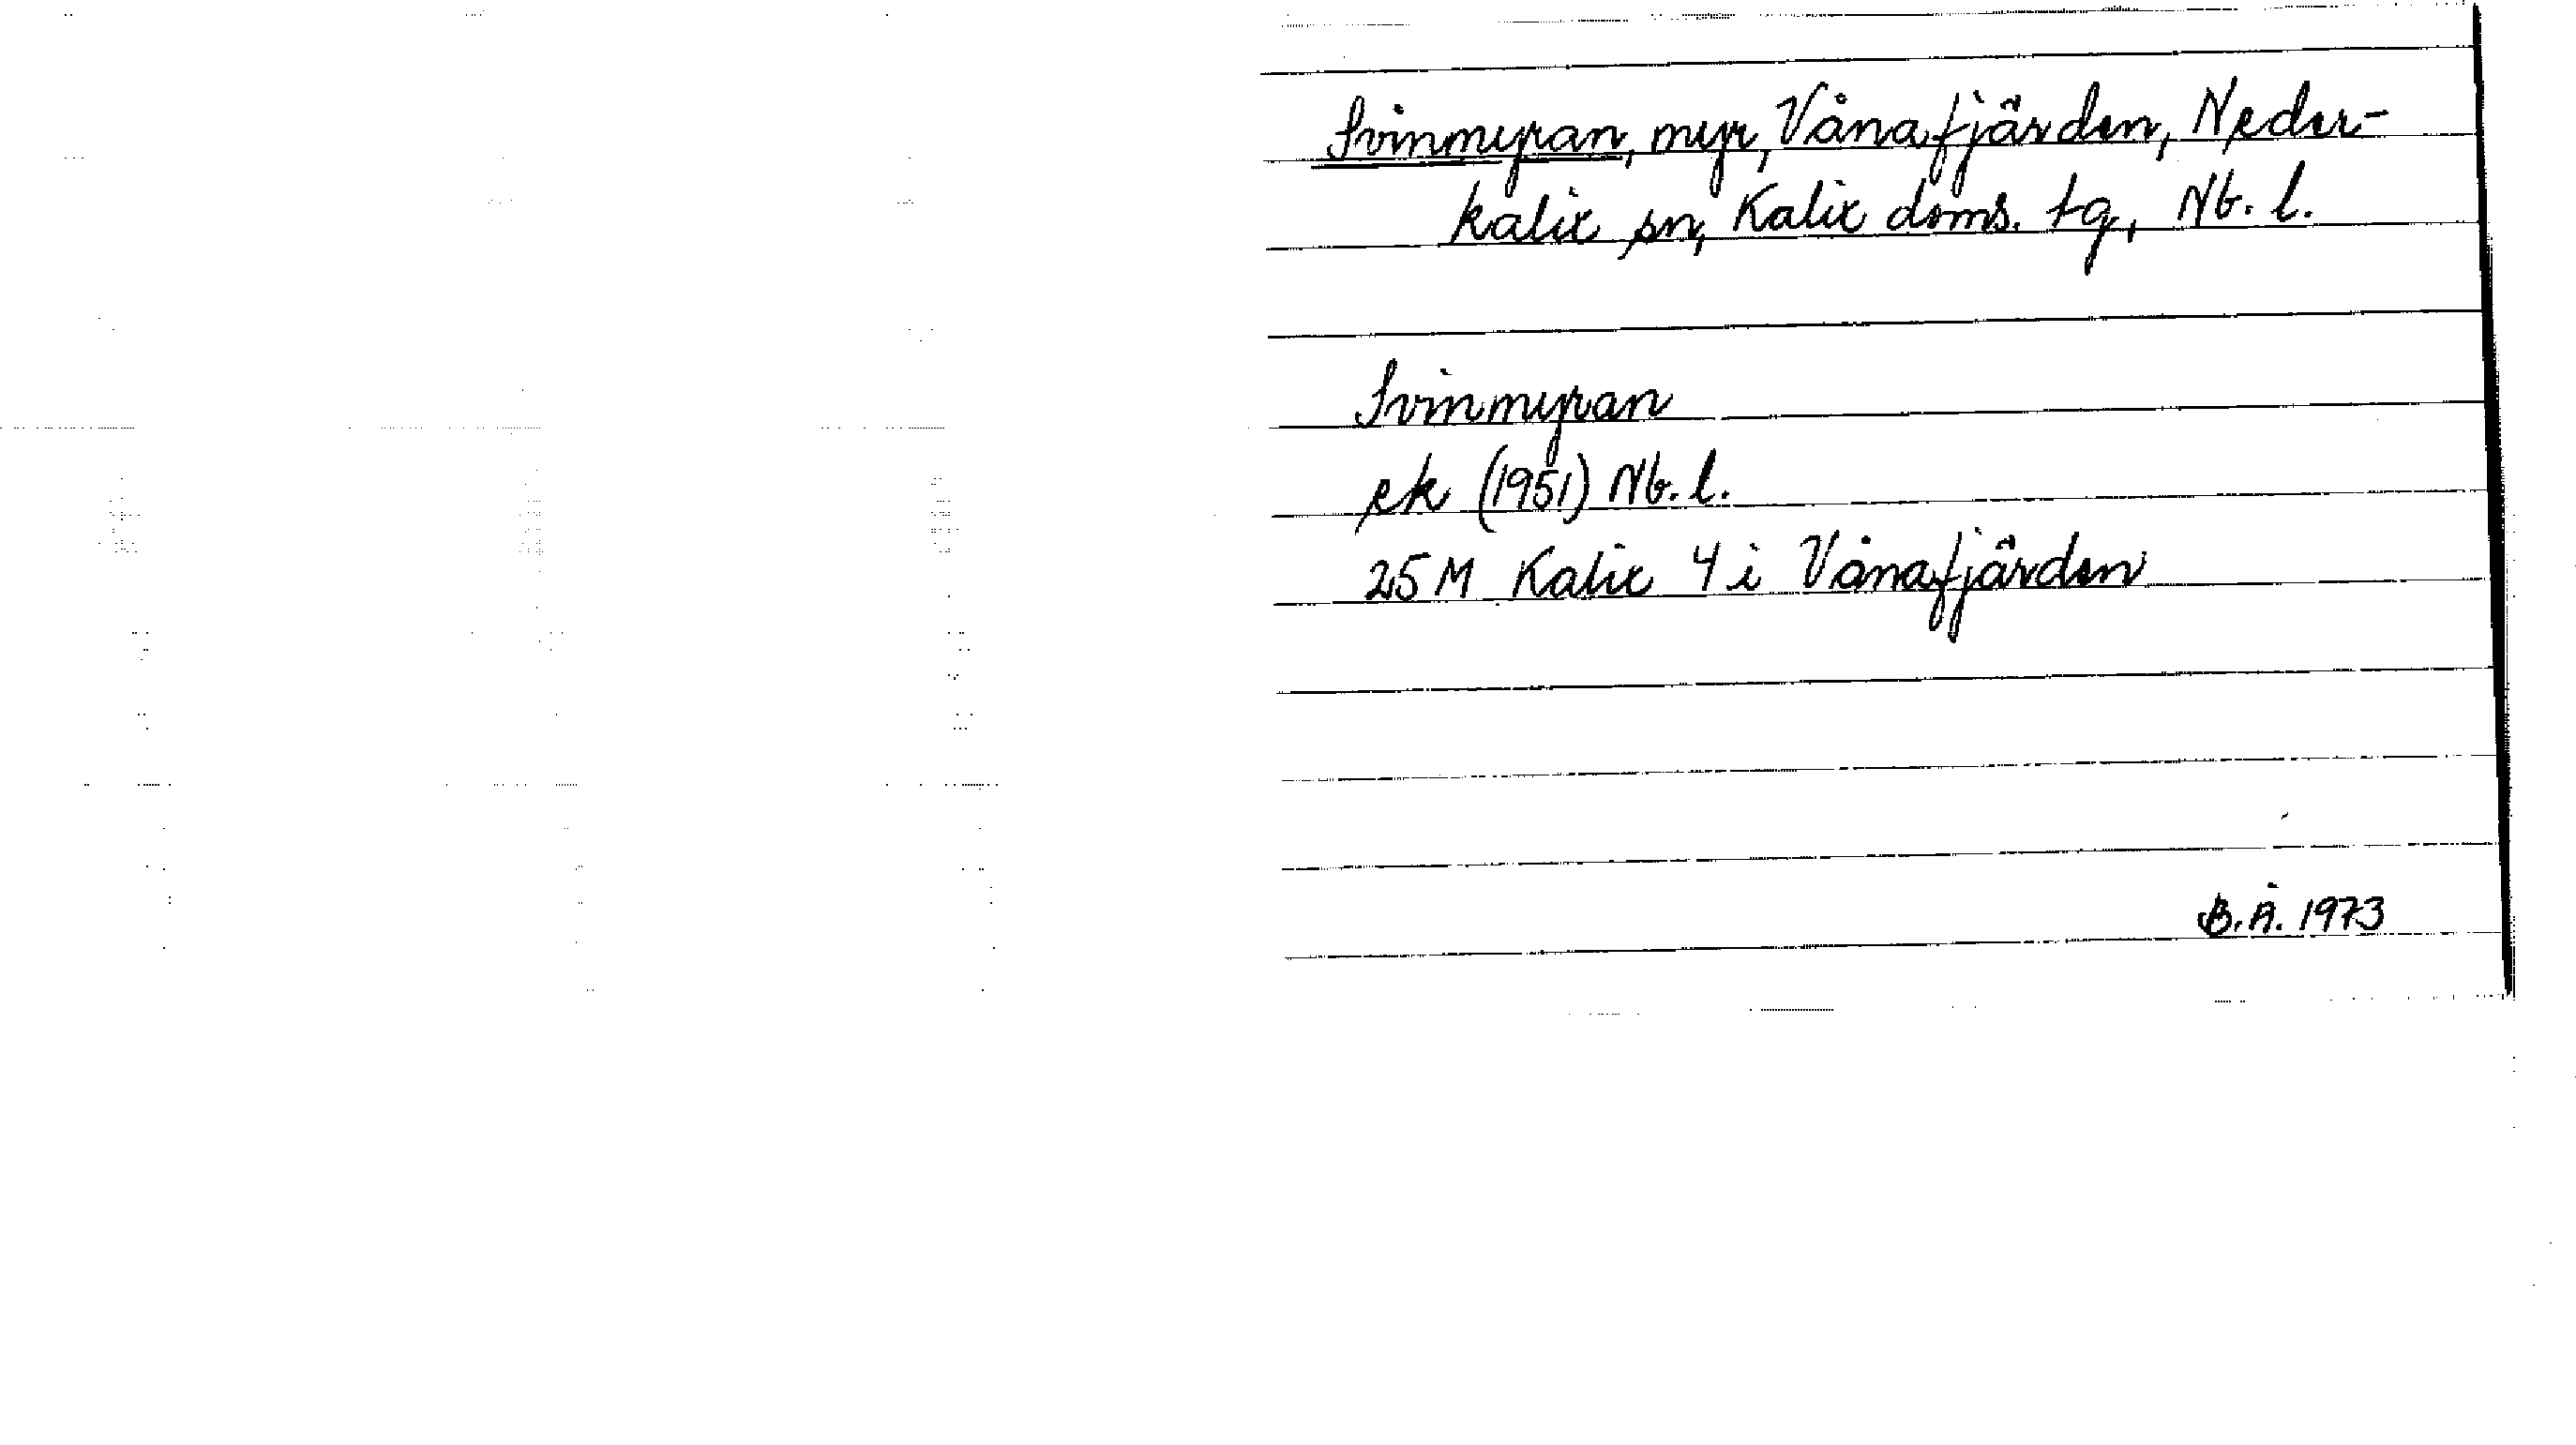 Svinmyran, myr, Vånafjärden, Neder-
kalix sn, Kalix doms. tg, Nb. l.
Svinmyran
ek (1951) Nb. l.
25 M Kalix 4 i Vånafjärden
B.Å. 1973